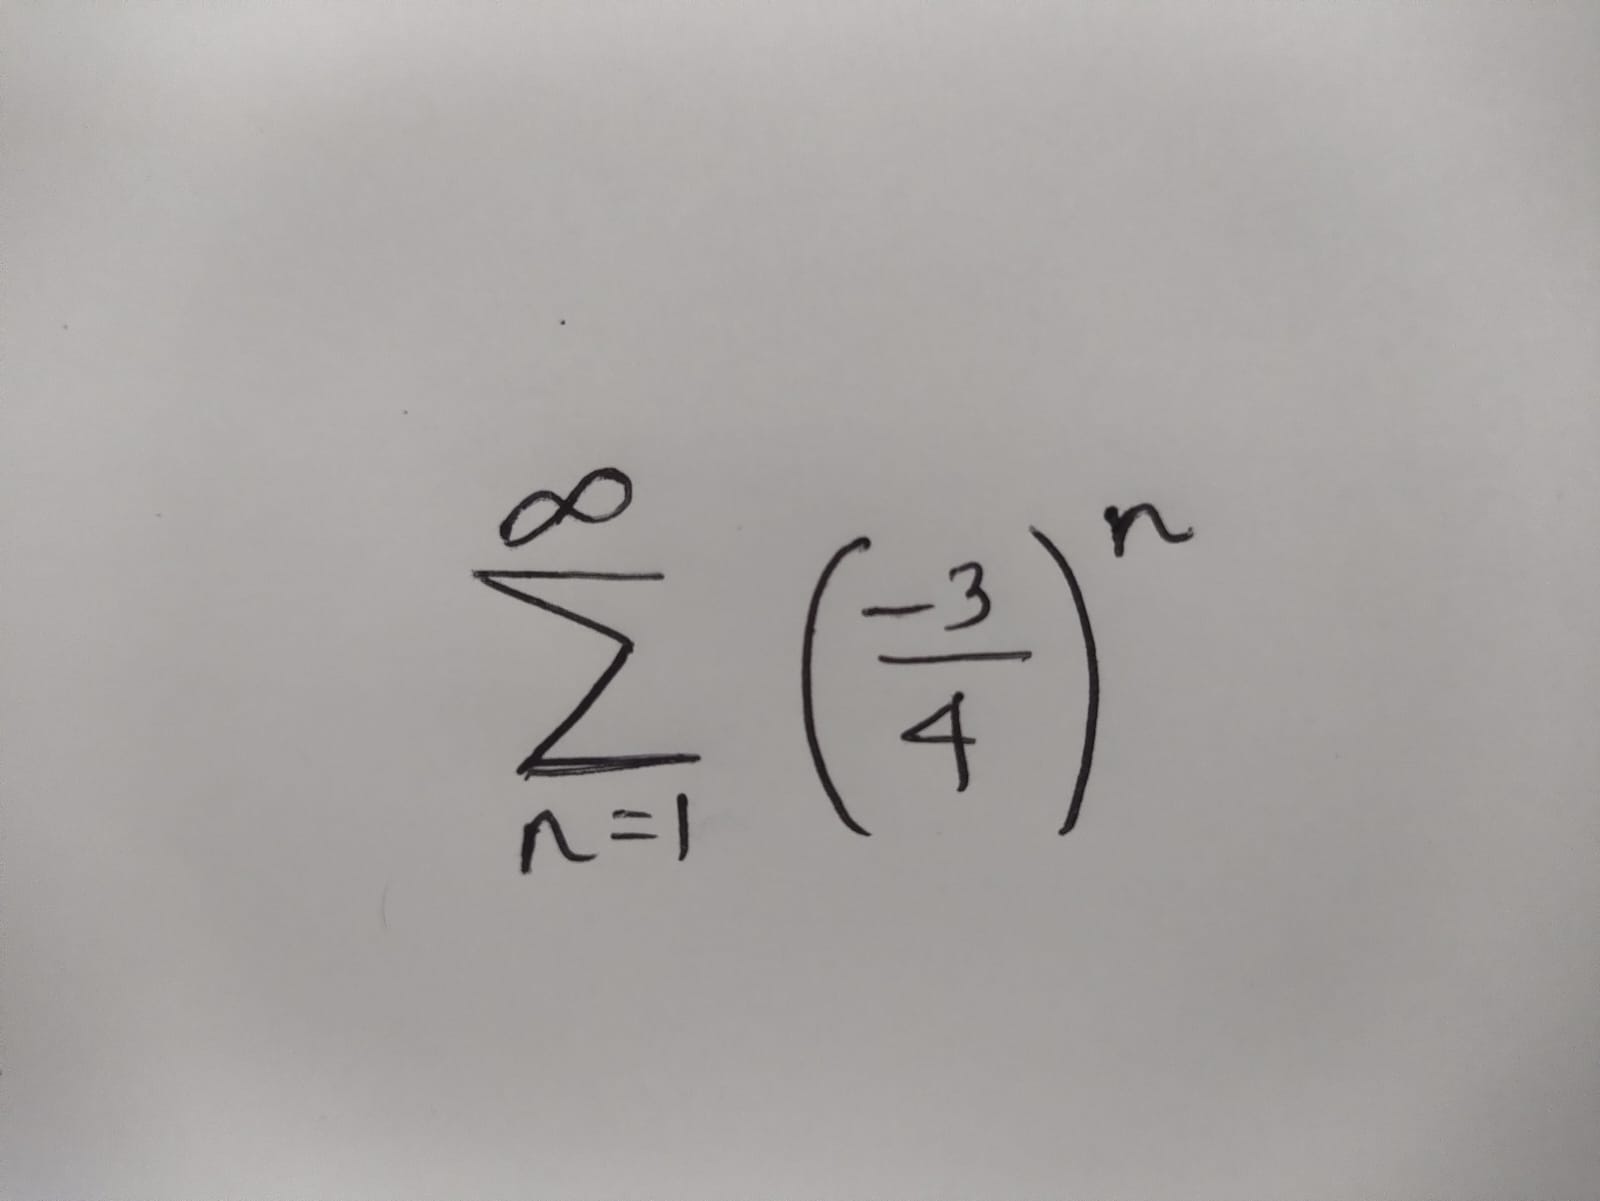 \sum_{n=1}^{\infty} \left( \frac{-3}{4} \right)^n